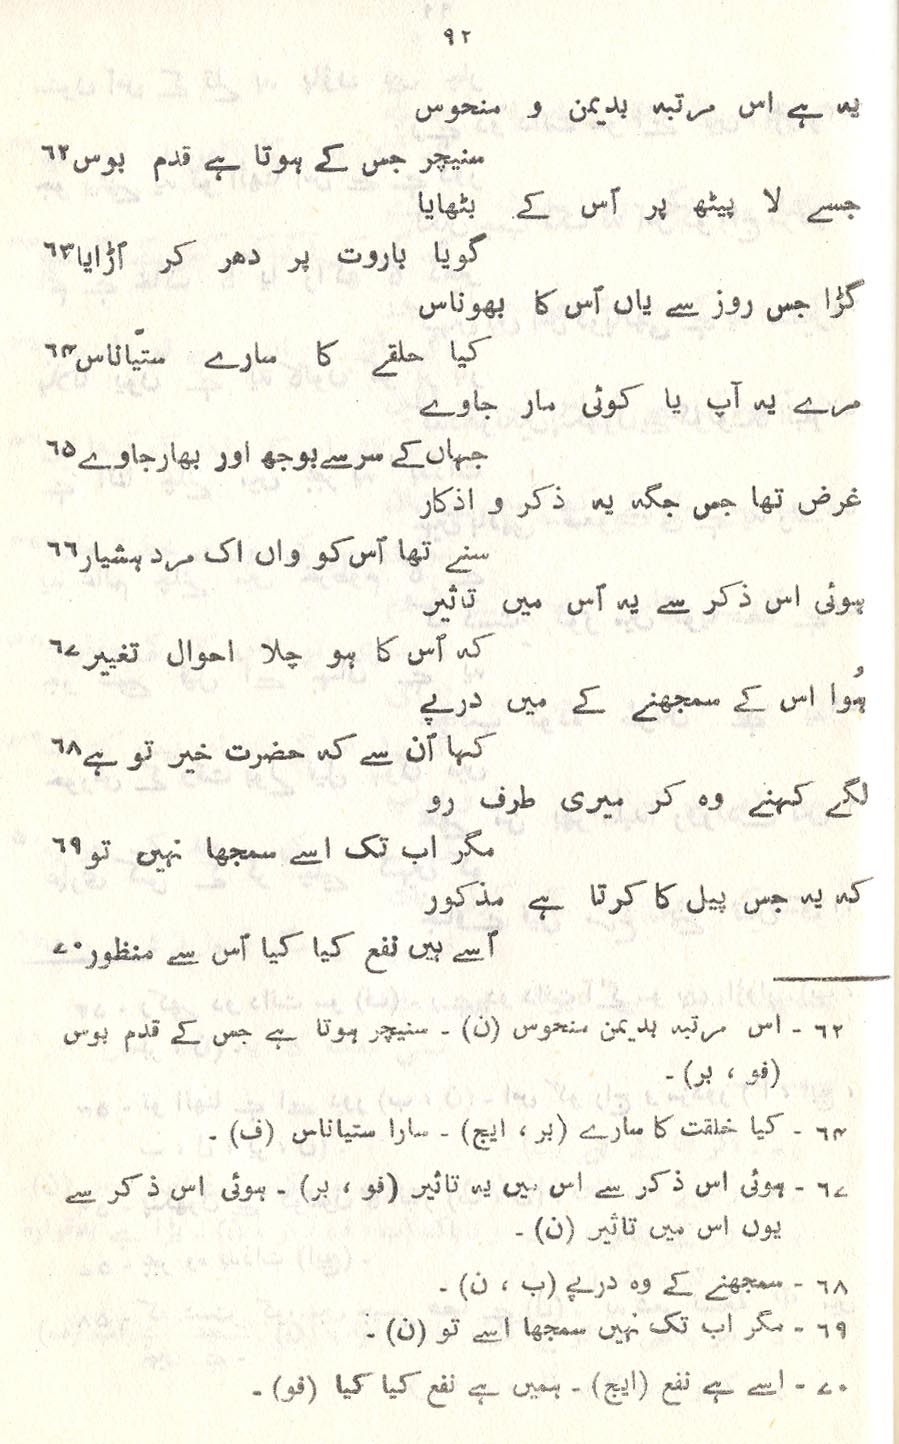 ۹۲
یہ ہے اس مرتبہ بدیمن و منحوس
سنیچر جس کے ہوتا ہے قدم بوس ۶۲
جسے لا پیٹھ پر اُس کے بٹھایا
گویا باروت پر دھر کر اُڑایا ۶۳
گڑا جس روز سے یاں اُس کا بھوناس
کیا حلقے کا سارے ستیّاناس ۶۴
مرے یہ آپ یا کوئی مار جاوے
جہاں کے سر سے بوجھ اور بھار جاوے ۶۵
غرض تھا جس جگہ یہ ذکر و اذکار
سنے تھا اُس کو واں اک مرد ہشیار ۶۶
ہوئی اس ذکر سے یہ اُس میں تاثیر
کہ اُس کا ہو چلا احوال تغییر ۶۷
ہُوا اس کے سمجھنے کے میں درپے
کہا اُن سے کہ حضرت خیر تو ہے ۶۸
لگے کہنے وہ کر میری طرف رو
مگر اب تک اسے سمجھا نہیں تو ۶۹
کہ یہ جس پیل کا کرتا ہے مذکور
اُسے ہیں نفع کیا کیا اُس سے منظور ۷۰
۶۲ ۔ اس مرتبہ بدیمن منحوس (ن) ۔ سنیچر ہوتا ہے جس کے قدم بوس
(فو ، بر) ۔
۶۴ ۔ کیا خلقت کا سارے (بر ، ایچ) ۔ سارا ستیاناس (ف) ۔
۶۷ ۔ ہوئی اس ذکر سے اس میں یہ تاثیر (فو ، بر) ۔ ہوئی اس ذکر سے
یوں اس میں تاثیر (ن) ۔
۶۸ ۔ سمجھنے کے وہ درپے (ب ، ن) ۔
۶۹ ۔ مگر اب تک نہیں سمجھا اسے تو (ن) ۔
۷۰ ۔ اسے ہے نفع (ایچ) ۔ ہمیں ہے نفع کیا کیا (فو) ۔